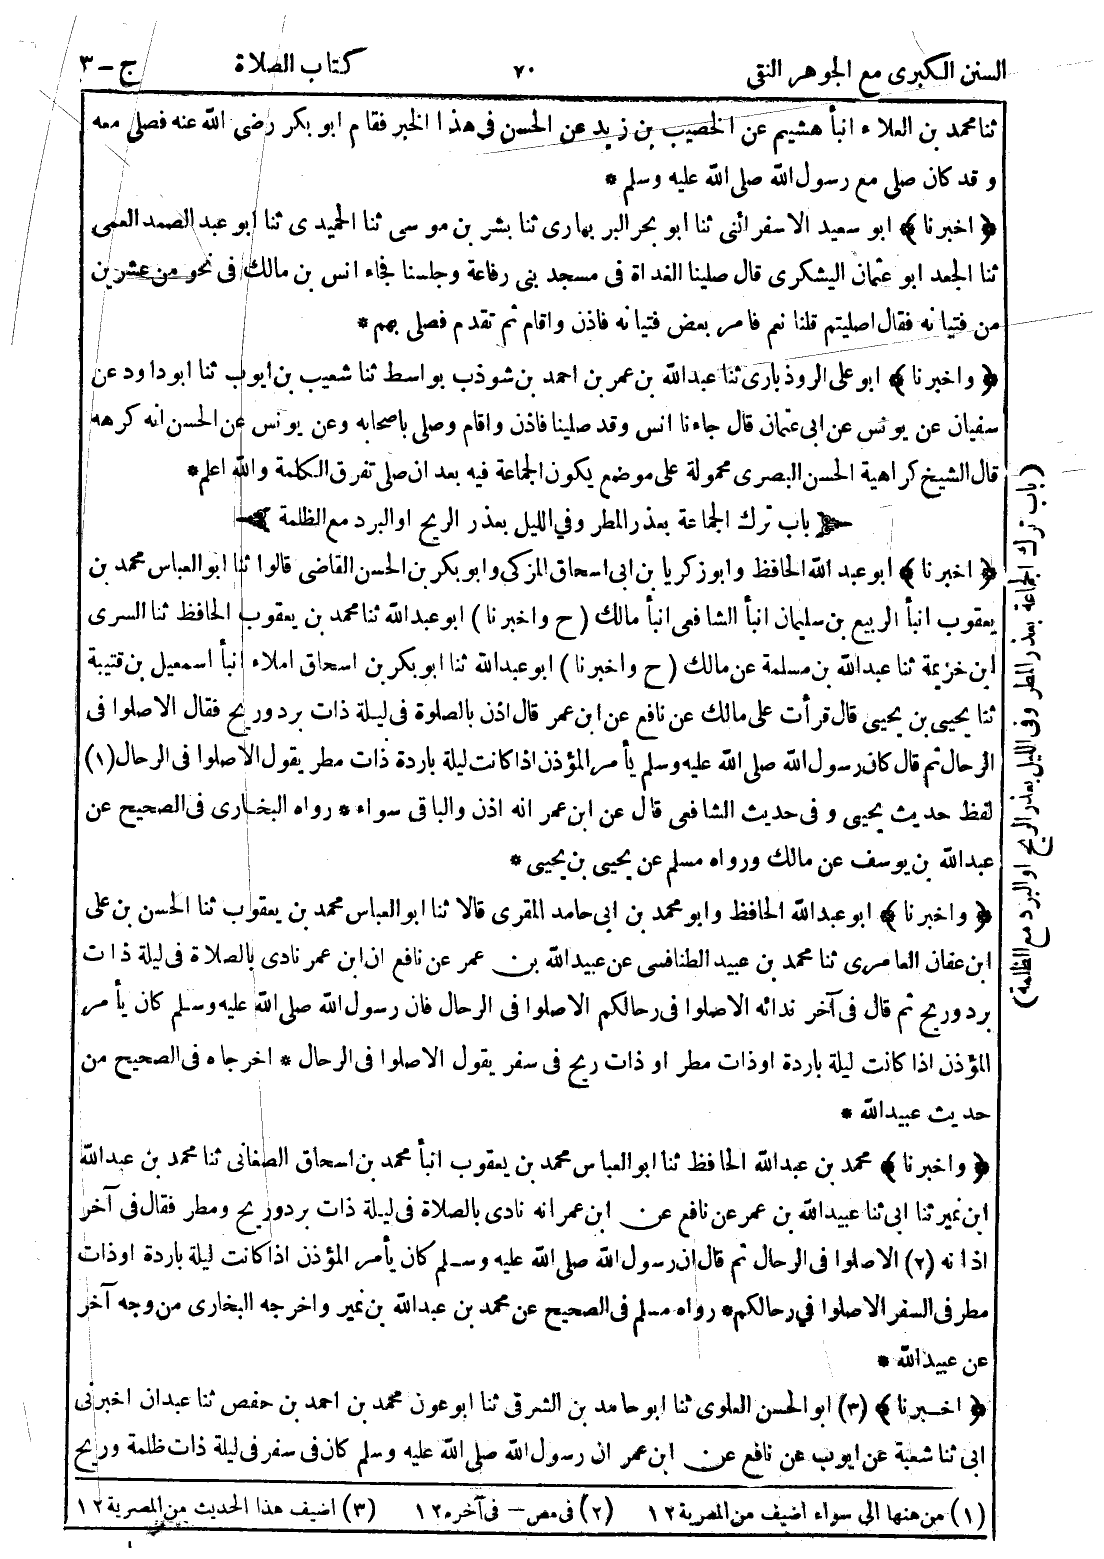 السنن الكبرى مع الجوهر النقى ٧٠ كتاب الصلاة ج-٣
ثنا محمد بن العلاء انبأ هشيم عن الخصيب بن زيد عن الحسن فى هذا الخبر فقام ابو بكر رضى الله عنه فصلى معه
وقد كان صلى مع رسول الله صلى الله عليه وسلم *
﴿ اخبرنا ﴾ ابو سعيد الاسفرائنى ثنا ابو بحر البر بهارى ثنا بشر بن موسى ثنا الحميدى ثنا ابو عبد الصمد العمى
ثنا الجعد ابو عثمان اليشكرى قال صلينا الغداة فى مسجد بنى رفاعة وجلسنا فجاء انس بن مالك فى نحو من عشرين
من فتيانه فقال اصليتم قلنا نعم فامر بعض فتيانه فاذن واقام ثم تقدم فصلى بهم *
﴿ واخبرنا ﴾ ابو على الروذبارى ثنا عبدالله بن عمر بن احمد بن شوذب بواسط ثنا شعيب بن ايوب ثنا ابوداود عن
سفيان عن يونس عن ابى عثمان قال جاءنا انس وقد صلينا فاذن واقام وصلى باصحابه وعن يونس عن الحسن انه كرهه
قال الشيخ كراهية الحسن البصرى محمولة على موضع يكون الجماعة فيه بعد ان صلى تفرق الكلمة والله اعلم *
باب ترك الجماعة بعذر المطر وفي الليل بعذر الريح او البرد مع الظلمة
﴿ اخبرنا ﴾ ابو عبد الله الحافظ وابو زكريا بن ابى اسحاق المزكى وابو بكر بن الحسن القاضى قالوا ثنا ابو العباس محمد بن
يعقوب انبأ الربيع بن سليمان انبأ الشافعى انبأ مالك (ح واخبرنا) ابو عبدالله ثنا محمد بن يعقوب الحافظ ثنا السرى
ابن خزيمة ثنا عبدالله بن مسلمة عن مالك (ح واخبرنا) ابو عبدالله ثنا ابو بكر بن اسحاق املاء انبأ اسمعيل بن قتيبة
ثنا يحيى بن يحيى قال قرأت على مالك عن نافع عن ابن عمر قال اذن بالصلوة فى ليلة ذات برد وريح فقال الاصلوا فى
الرحال ثم قال كان رسول الله صلى الله عليه وسلم يأمر المؤذن اذا كانت ليلة باردة ذات مطر يقول الاصلوا فى الرحال (١)
لفظ حديث يحيى وفى حديث الشافعى قال عن ابن عمر انه اذن والباقى سواء * رواه البخارى فى الصحيح عن
عبدالله بن يوسف عن مالك ورواه مسلم عن يحيى بن يحيى *
﴿ واخبرنا ﴾ ابو عبدالله الحافظ وابو محمد بن ابى حامد المقرى قالا ثنا ابو العباس محمد بن يعقوب ثنا الحسن بن على
ابن عفان العامرى ثنا محمد بن عبيد الطنافسى عن عبيدالله بن عمر عن نافع ان ابن عمر نادى بالصلاة فى ليلة ذات
برد وريح ثم قال فى آخر ندائه الاصلوا فى رحالكم الاصلوا فى الرحال فان رسول الله صلى الله عليه وسلم كان يأمر
المؤذن اذا كانت ليلة باردة او ذات مطر او ذات ريح فى سفر يقول الاصلوا فى الرحال * اخرجاه فى الصحيح من
حديث عبيدالله *
﴿ واخبرنا ﴾ محمد بن عبدالله الحافظ ثنا ابو العباس محمد بن يعقوب انبأ محمد بن اسحاق الصغانى ثنا محمد بن عبدالله
ابن نمير ثنا ابى ثنا عبيدالله بن عمر عن نافع عن ابن عمر انه نادى بالصلاة فى ليلة ذات برد وريح ومطر فقال فى آخر
اذانه (٢) الاصلوا فى الرحال ثم قال ان رسول الله صلى الله عليه وسلم كان يأمر المؤذن اذا كانت ليلة باردة او ذات
مطر فى السفر الاصلوا في رحالكم * رواه مسلم فى الصحيح عن محمد بن عبدالله بن نمير واخرجه البخارى من وجه آخر
عن عبيدالله *
﴿ اخبرنا ﴾ (٣) ابو الحسن العلوى ثنا ابو حامد بن الشرقى ثنا ابو عون محمد بن احمد بن حفص ثنا عبدان اخبرنى
ابى ثنا شعبة عن ايوب عن نافع عن ابن عمر ان رسول الله صلى الله عليه وسلم كان فى سفر فى ليلة ذات ظلمة وريح
(١) من هنا الى سواء اضيف من المصرية ١٢ (٢) فى مص - فى آخره ١٢ (٣) اضيف هذا الحديث من المصرية ١٢
(باب ترك الجماعة بعذر المطر وفى الليل بعذر الريح او البرد مع الظلمة)